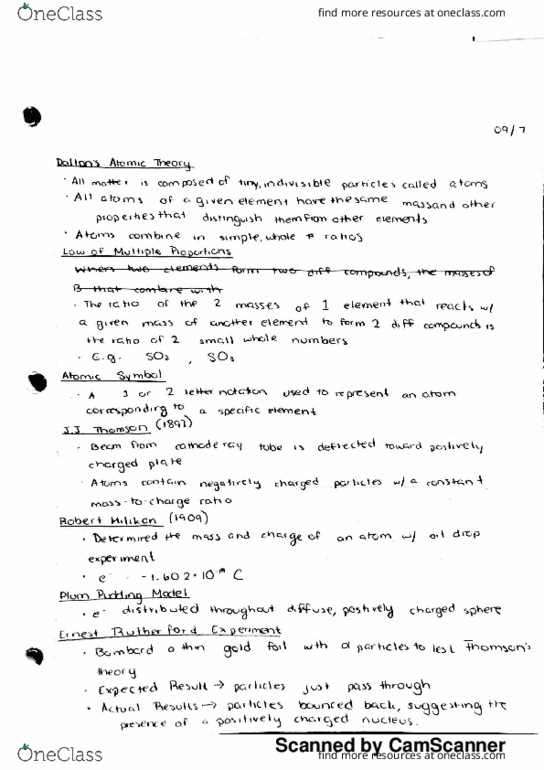 OneClass
find more resources at oneclass.com
09/7
Dalton's Atomic Theory
· All matter is composed of tiny, indivisible particles called atoms
· All atoms of a given element have the same mass and other
properties that distinguish them from other elements
· Atoms combine in simple, whole # ratios
Law of Multiple Proportions
When two elements form two diff compounds, the masses of
B that combine with
· The ratio of the 2 masses of 1 element that reacts w/
a given mass of another element to form 2 diff compounds is
the ratio of 2 small whole numbers
· E.g. SO₂ , SO₃
Atomic Symbol
· A 1 or 2 letter notation used to represent an atom
corresponding to a specific element
J.J. Thomson (1897)
· Beam from cathode ray tube is deflected toward postively
charged plate
· Atoms contain negatively charged particles w/ a constant
mass-to-charge ratio
Robert Miliken (1909)
· Determined the mass and charge of an atom w/ oil drop
experiment
· e⁻ -1.602×10⁻¹⁹ C
Plum Pudding Model
· e⁻ distributed throughout diffuse, postively charged sphere
Ernest Rutherford Experiment
· Bombard a thin gold foil with α particles to test Thomson's
theory
· Expected Result → particles just pass through
· Actual Results → particles bounced back, suggesting the
presence of a positively charged nucleus.
Scanned by CamScanner
OneClass
find more resources at oneclass.com